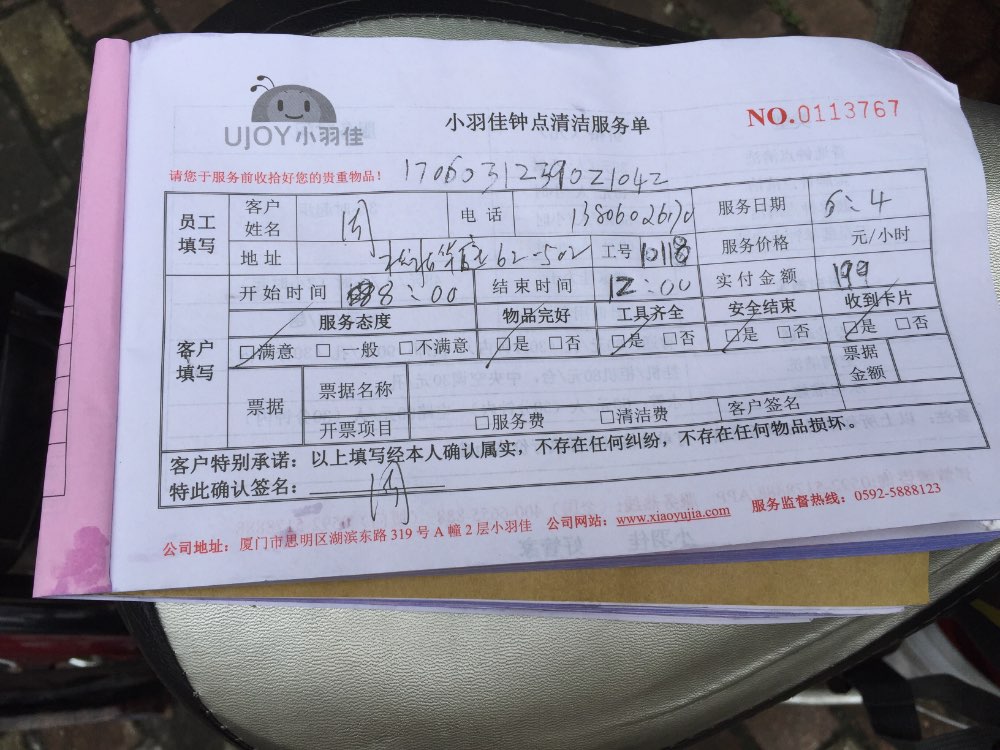 UJOY小羽佳
小羽佳钟点清洁服务单
NO.0113767
请您于服务前收拾好您的贵重物品!
1706031239021042
员工填写 客户姓名 电话 13806026170 服务日期 6:4
地址 62-502 工号 10118 服务价格 元/小时
开始时间 8:00 结束时间 12:00 实付金额 199
客户填写 服务态度 物品完好 工具齐全 安全结束 收到卡片
□满意 □一般 □不满意 □是 □否 □是 □否 □是 □否 □是 □否
票据 票据名称 票据金额
开票项目 □服务费 □清洁费 客户签名
客户特别承诺:以上填写经本人确认属实,不存在任何纠纷,不存在任何物品损坏。
特此确认签名:
公司地址:厦门市思明区湖滨东路319号A幢2层小羽佳 公司网站:www.xiaoyujia.com 服务监督热线:0592-5888123